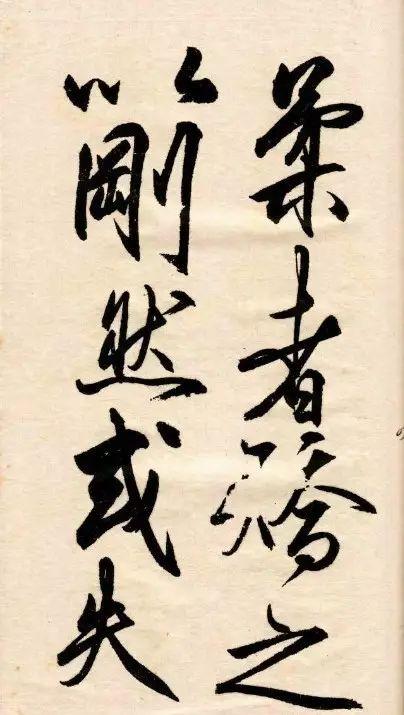 柔者矯之
以剛然或失